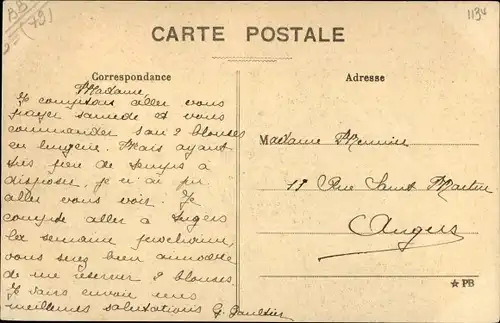 AB
(79)
1134
CARTE POSTALE
Correspondance
Adresse
Madame
Je comptais aller vous
payer samedi et vous
commander 1 ou 2 blouses
en lingerie. Mais ayant
très peu de temps à
disposer, je n'ai pu
aller vous voir. Je
compte aller à Angers
la semaine prochaine,
vous serez bien aimable
de me réserver 2 blouses.
Je vous envoie mes
meilleures salutations G. Gaultier
Madame
11 Rue Saint Martin
Angers
★ PB